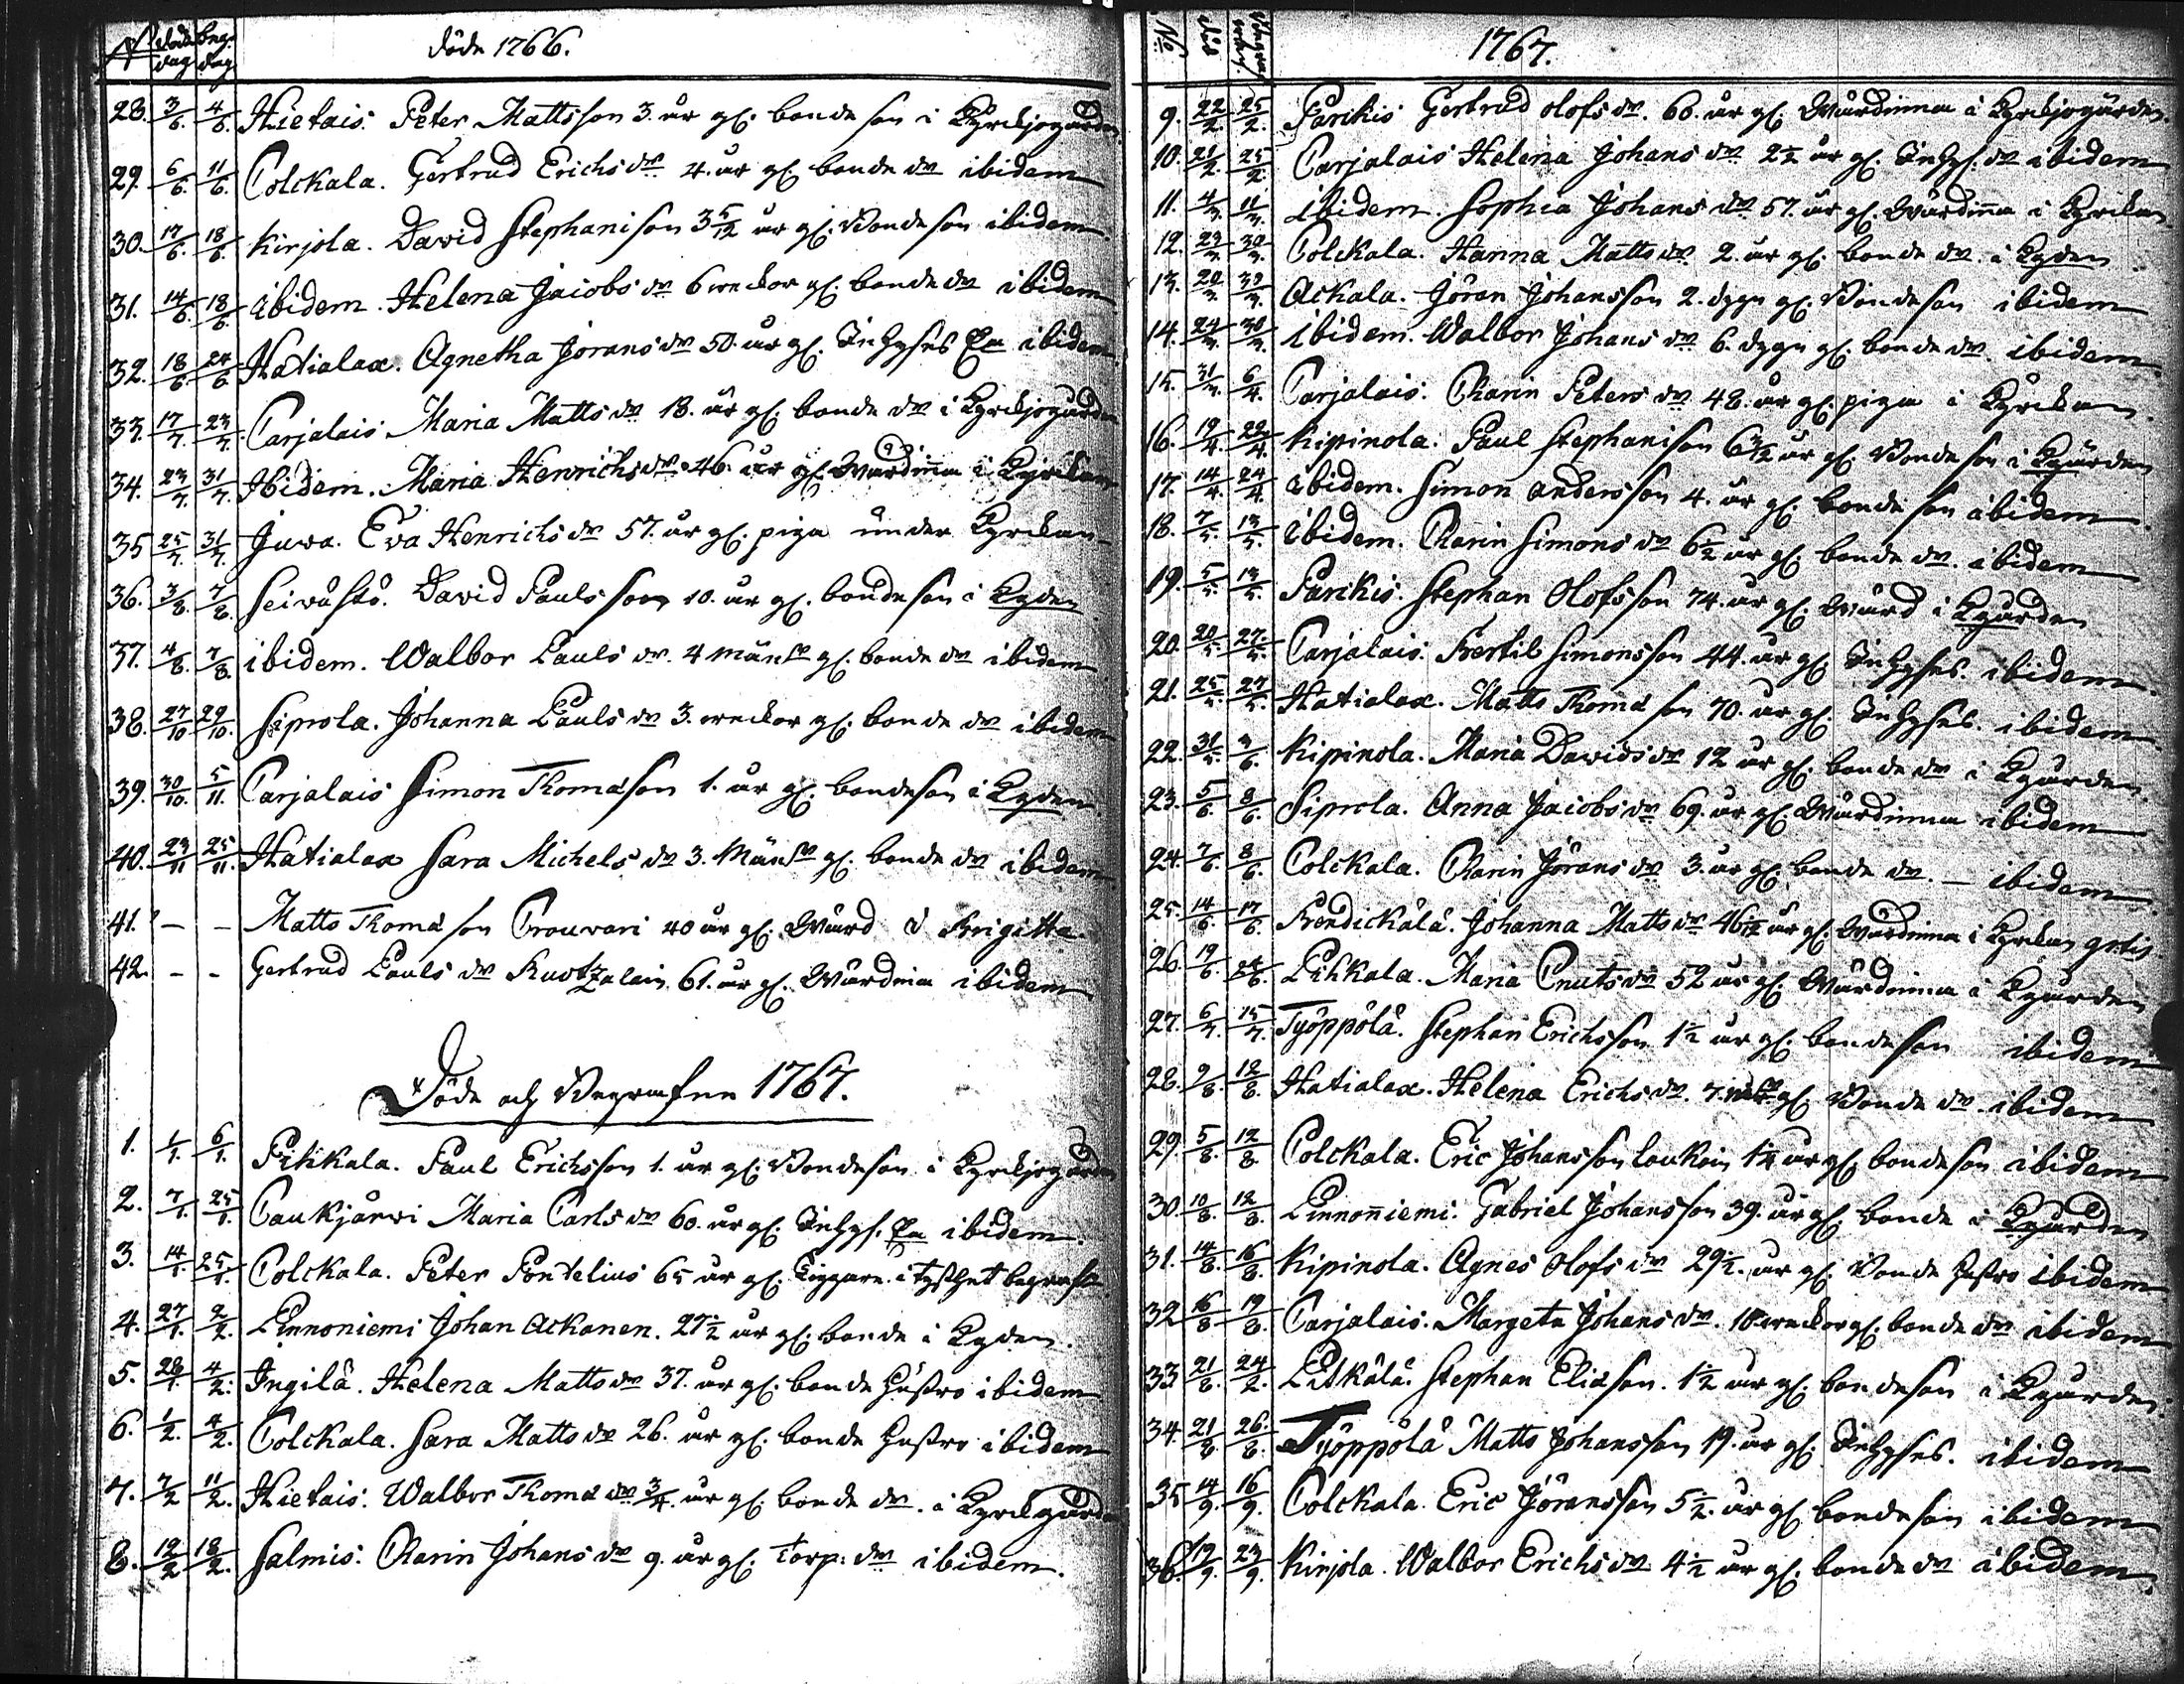 N döde dag beg: dag Döde 1766.
28. 3/6. 4/6. Hietais. Peter Mattsson 3. år gl. bonde son i Kyrckjogården
29. 6/6. 11/6. Colckala. Gertrud Erichs dr 4. år gl. bonde dr ibidem
30. 17/6. 18/6. Kirjola. David Stephanison 3 5/12 år gl. Bonde son ibidem.
31. 14/6. 18/6. ibidem. Helena Jacobs dr 6 weckor gl. bonde dr ibidem
32. 18/6. 24/6 Hatialax. Agnetha Jörans dr 50. år gl. Inhyses ibidem
33. 17/7. 23/7. Carjalais Maria Matts dr 18. år gl. bonde dr i Kyrckjogården
34. 23/7. 31/7. Ibidem. Maria Henrichs dr 46. år gl. Wärdinna i Kyrckan
35 25/7. 31/7. Juwa. Eva Henrichs dr 57. år gl. piga under Kyrckan
36. 3/8. 7/8. Seivästö. David Paulsson 10. år gl. bonde son i Kgden
37. 4/8. 7/8. ibidem. Walbor Pauls dr. 4 mån gl. bonde dr ibidem
38. 27/10 29/10. Siprola. Johanna Pauls dr 3. weckor gl. bonde dr ibidem
39. 30/10. 5/11. Carjalais Simon Thomason 1. år gl. bondeson i Kgden
40. 23/11 25/11. Hatialax Sara Michels dr 3. Mån gl. bonde dr ibidem
41. - - Matts Thomason Prouvari 40 år gl. Wärd Brigitta.
42. - - Gertrud Pauls dr 61. år gl. Wärdina ibidem
Döde och Begrafne 1767.
1. 1/1. 6/1. Pihkala. Paul Erichsson 1. år gl. Bondeson i Kyrckjogården
2. 7/1. 25/1. Caukjärwi Maria Carls dr 60. år gl. Inhys. ibidem.
3. 14/1. 25/1. Colckala. Peter Pontelius 65 år gl. Tiggare i tysthet begrafn
4. 27/1. 2/2. Linnoniemi Johan Ackanen. 27 1/2 år gl. bonde i Kgden.
5. 28/1. 4/2. Ingilä. Helena Matts dr 37. år gl. bonde hustro ibidem
6. 1/2. 4/2. Colckala. Sara Matts dr 26. år gl. bonde hustro ibidem
7. 7/2 11/2. Hietais. Walbor Thoma dr 3/4 år gl. bonde dr. i Kyrckgården
8. 12/2 18/2. Salmis. Carin Johans dr 9. år gl. torp: dr ibidem.
No död 1767.
9. 22/2. 25/2. Parikis Gertrud Olofs dr. 60. år gl. Wärdinna i Kyrckjogården.
10. 21/2. 25/2. Carjalais Helena Johans dr 2 1/2 år gl. Inhys. dr ibidem
11. 4/3. 11/3. Ibidem. Sophia Johans dr 57. år gl. Wärdinna i Kyrckan
12. 23/3. 30/3. Colckala. Hanna Matts dr. 2. år gl. bonde dr. i Kgden
13. 20/3. 30/3. Ackala. Jöran Johansson 2. dygn gl. Bonde son ibidem
14. 24/3. 30/3. ibidem. Walbor Johans dr 6. dygn gl. bonde dr. ibidem.
15. 31/3. 6/4. Carjalais. Carin Peters dr 48. år gl. piga i Kyrckan.
16. 19/4. 22/4. Kipinola. Paul Stephanison 6 år gl. Bonde son i Kgården
17. 14/4. 24/4. ibidem. Simon Andersson 4. år gl. bonde son ibidem.
18. 7/5. 13/5. Ibidem. Carin Simons dr 6 1/2 år gl. bonde dr. ibidem
19. 5/5. 13/5. Parikis. Stephan Olofsson 74. år gl. Wärd i Kgården
20. 20/5. 27/5. Carjalais. Bertil Simonsson 44. år gl. Inhyses. ibidem.
21. 25/5. 27/5. Hatialax. Matts Thoma son 70. år gl. Inhyses. ibidem.
22. 31/5. 3/6. Kipinola. Maria Davids dr 12 år gl. bonde dr i Kgården.
23. 5/6. 8/6. Siprola. Anna Jacobs dr 69. år gl. Wärdinna ibidem
24. 7/6. 8/6. Colckala. Carin Jörans dr 3. år gl. bonde dr. — ibidem.
25. 14/6. 17/6. Bendickälä. Johanna Matts dr 46 1/2 år gl. Wärdinna i Kyrkan gratis
26. 19/6. 24/6. Pihkala. Maria Cnuts dr 52 år gl. Wärdinna i Kgården
27. 6/7. 15/7. Työppölä. Stephan Erichsson 1 1/2 år gl. bonde son ibidem
28. 9/8. 12/8. Hatialax. Helena Erichs dr. 7. gl. Bonde dr. ibidem
29. 5/8. 12/8. Colckala. Eric Johansson Loukoin 1 1/4 år gl. bonde son ibidem
30. 10/8. 12/8. Linnoniemi. Gabriel Johansson 39. år gl. bonde i Kgården
31. 14/8. 16/8. Kipinola. Agnes Olofs dr 29 1/2. år gl. Bonde hustro ibidem
32 16/8 19/8. Carjalais. Margeta Johans dr. 10 weckor gl. bonde dr ibidem
33 21/8. 24/2. Pitkälä. Stephan Eliason. 1 1/2 år gl. bonde son i Kgården.
34. 21/8 26/8. Työppölä Matts Johansson 19. år gl. Inhyses. ibidem
35 14/9. 16/9. Colckala. Eric Jöransson 5 1/2. år gl. bonde son ibidem
36. 19/9. 23/9. Kirjola. Walbor Erichs dr 4 1/2 år gl. bonde dr ibidem.